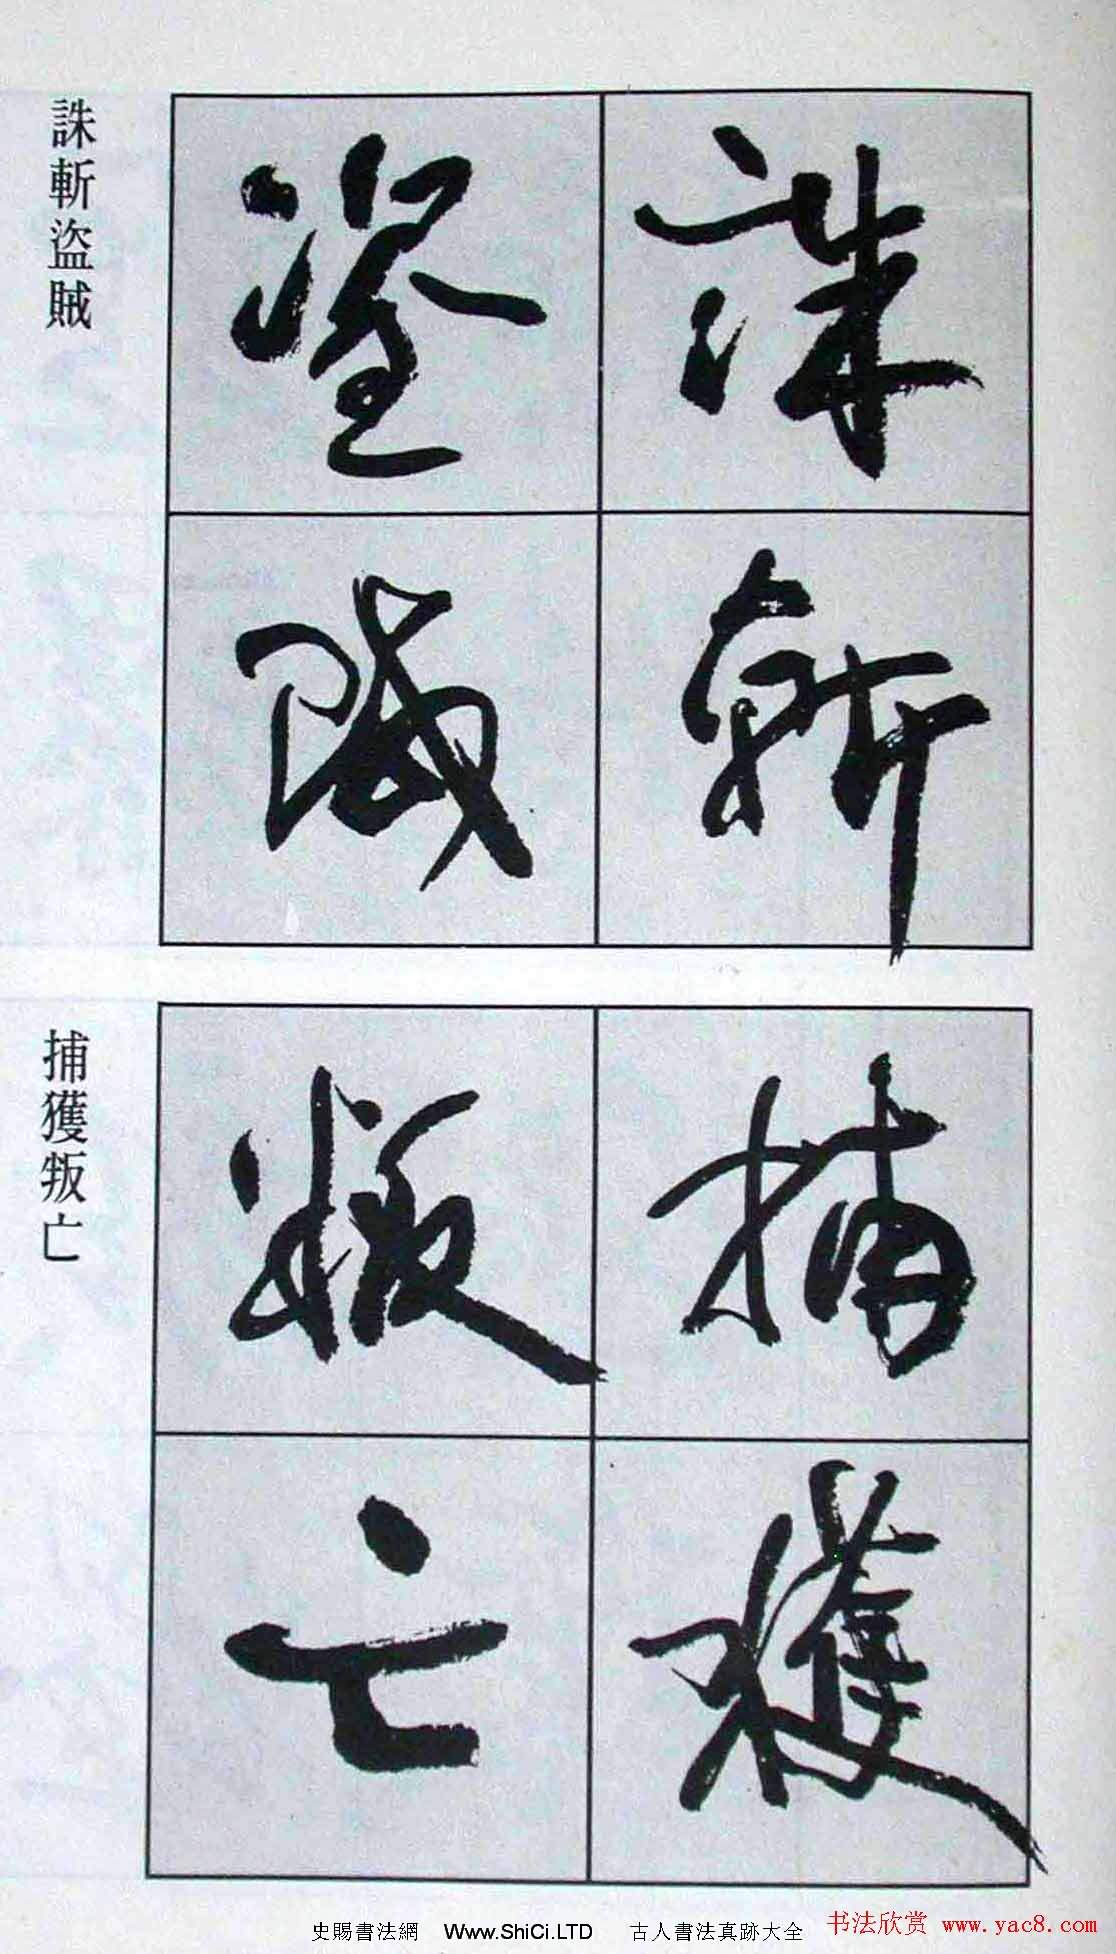 誅斬盜賊
誅斬
盜賊
捕獲叛亡
捕獲
叛亡
史賜書法網 Www.ShiCi.LTD 古人書法真跡大全
书法欣赏 www.yac8.com